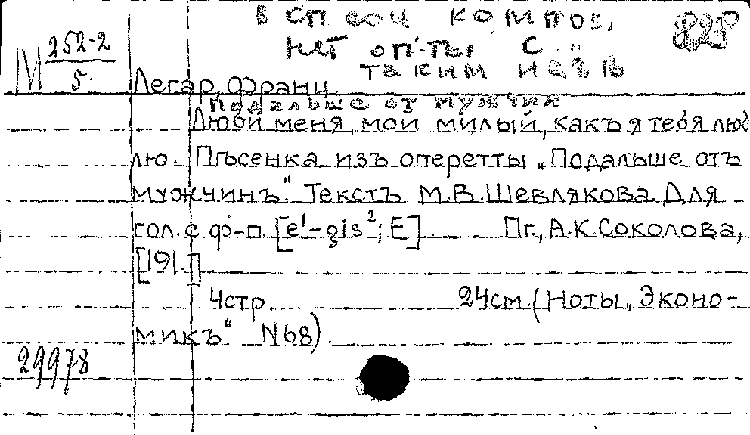 в спсои композ.
нет оп-ты с
таким назв
828
М 252-2
5
Легар, Франц
Подальше от мужчин
Люби меня, мой милый, какъ я тебя люб
лю. Пѣсенка изъ оперетты „Подальше отъ
мужчинъ“ Текстъ М.В.Шевлякова. Для
гол. с ф-п [e¹-gis²; E] Пг., А.К.Соколова,
[191.]
4стр. 24см. (Ноты „Эконо-
микъ“ N68)
29978